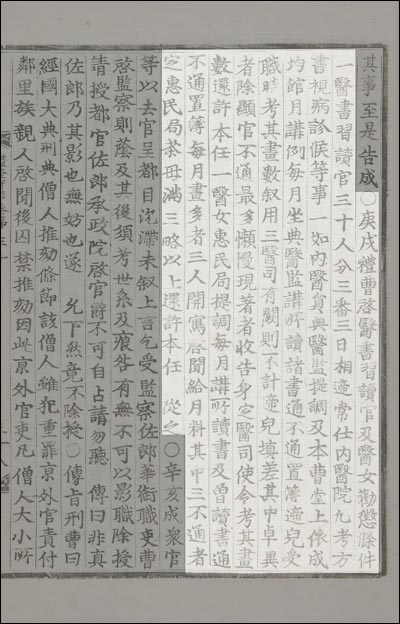 其事至是告成○庚戌禮曹啓醫書習讀官及醫女勸懲條件
一醫書習讀官三十人分三番三日相遞常仕內醫院凡考方
書視病診候等事一如內醫員與醫監提調及本曹堂上依成
均館月講例每月坐典醫監講所讀諸書通不通置簿遞兒受
職時考其畫數敍用三醫司有闕則不計遞兒塡差其中卓異
者除顯官不通最多懶慢現著者收告身定醫司使令考其畫
數還許本任一醫女惠民局提調每月講所讀書及曾讀書通
不通置簿每月畫多者三人開寫啓聞給月料其中三不通者
定惠民局茶母滿三略以上還許本任 從之○辛亥成衆官
等以去官呈都目沈滯未敍上言乞受監察佐郞華銜職吏曹
啓監察則蔭及其後須考世系及痕咎有無不可以影職除授
請授都官佐郞承政院啓官爵不可自占請勿聽 傳曰非眞
佐郞乃其影也無妨也遂 允下然竟不除授○傳旨刑曹曰
經國大典刑典僧人推劾條節該僧人雖犯重罪京外官責付
鄰里族親人啓聞後囚禁推劾因此京外官吏凡僧人大小所